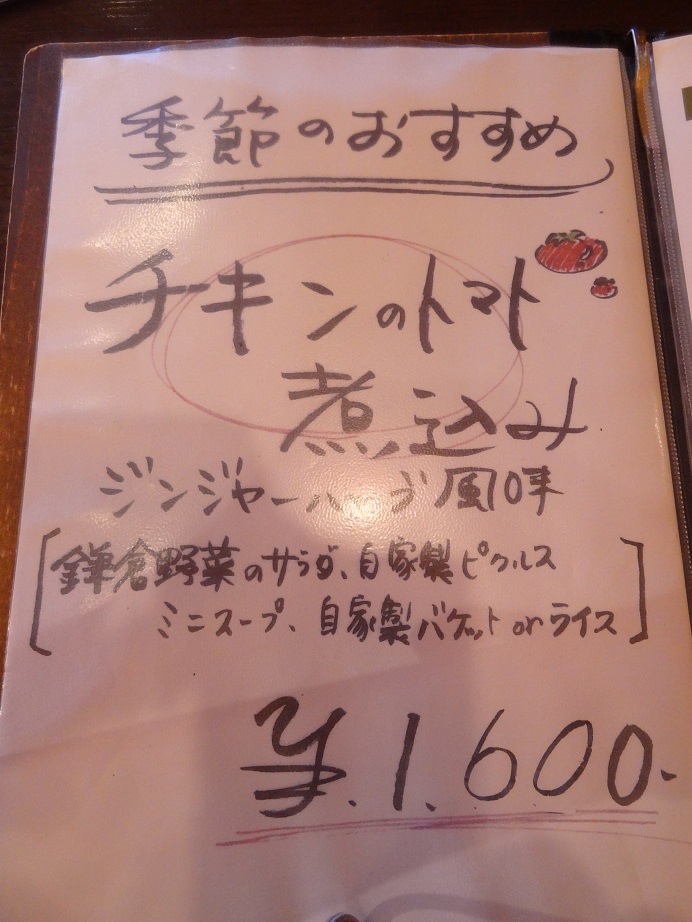 季節のおすすめ
チキンのトマト
煮込み
ジンジャーハーブ風味
[鎌倉野菜のサラダ、自家製ピクルス
ミニスープ、自家製バゲット or ライス]
¥.1.600.-